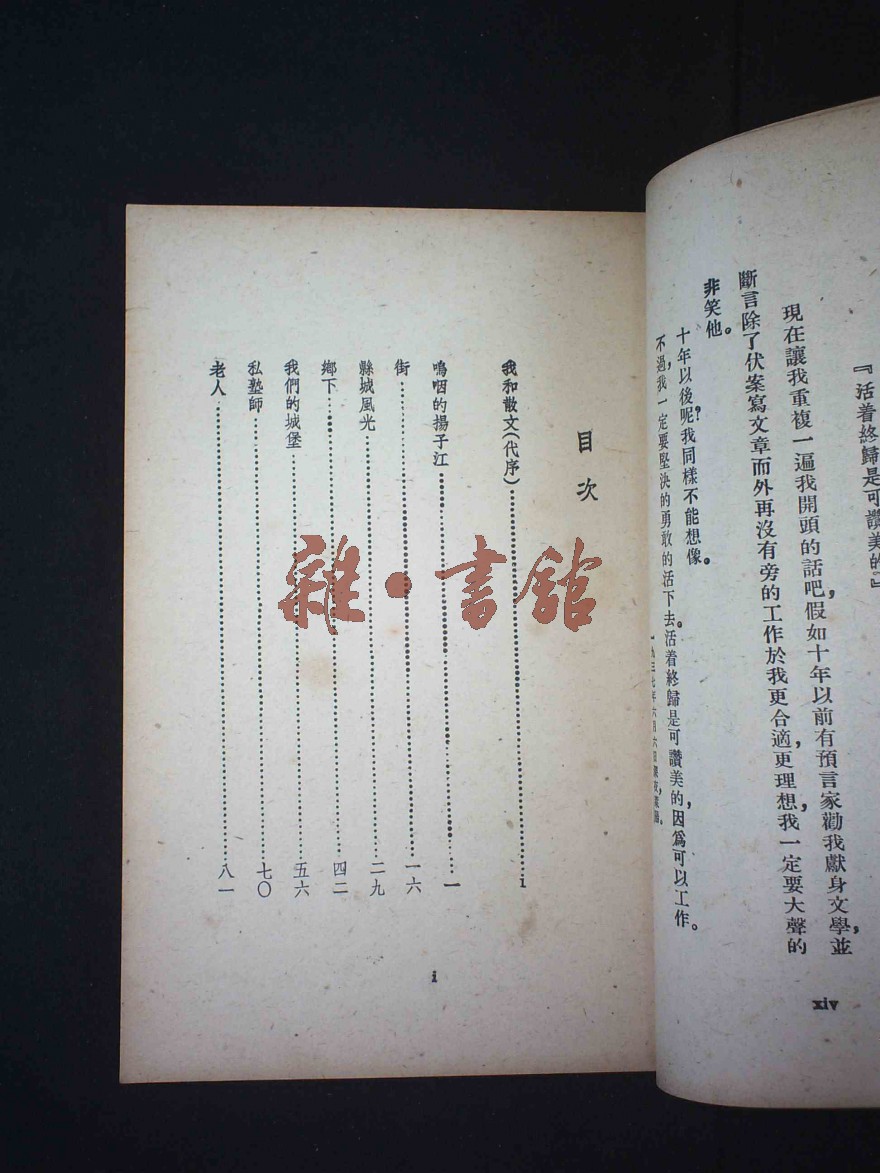 『活着終歸是可讚美的。』
現在讓我重複一遍我開頭的話吧，假如十年以前有預言家勸我獻身文學，並
斷言除了伏案寫文章而外再沒有旁的工作於我更合適，更理想，我一定要大聲的
非笑他。
十年以後呢？我同樣不能想像。
不過，我一定要堅決的勇敢的活下去。活着終歸是可讚美的，因爲可以工作。
xiv
目次
我和散文（代序）……i
嗚咽的揚子江……一
街……一六
縣城風光……二九
鄉下……四二
我們的城堡……五六
私塾師……七〇
老人……八一
i
雜·書館